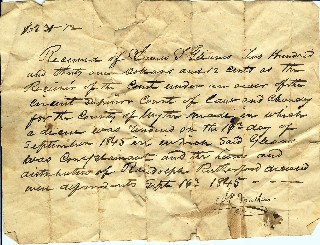 $231-12
Received of James S Gleaves Two Hundred
and thirty one dollars and 12 cents as the
Receiver of the Court under an order of the
circuit Superior Court of Law and Chancery
for the County of Wythe made in which
a decree was rendered on the 16th day of
September 1845 in which Said Gleaves
was Complainant and the heirs and
distributees of Randolph Rutherford deceased
were defendants Sept 16th 1845